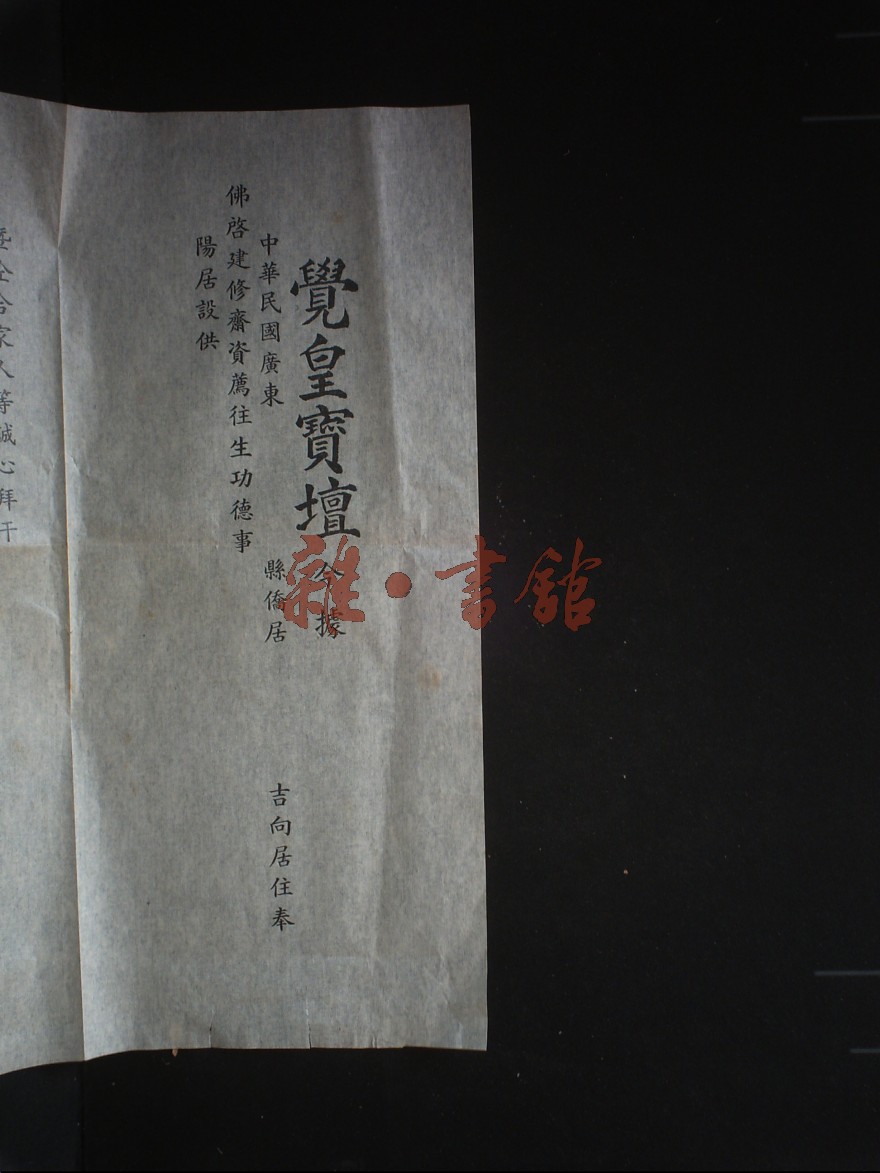 覺皇寶壇 今據
中華民國廣東 縣僑居 吉向居住奉
佛啓建修齋資薦往生功德事
陽居設供
全合家人等誠心拜干
雜·書館